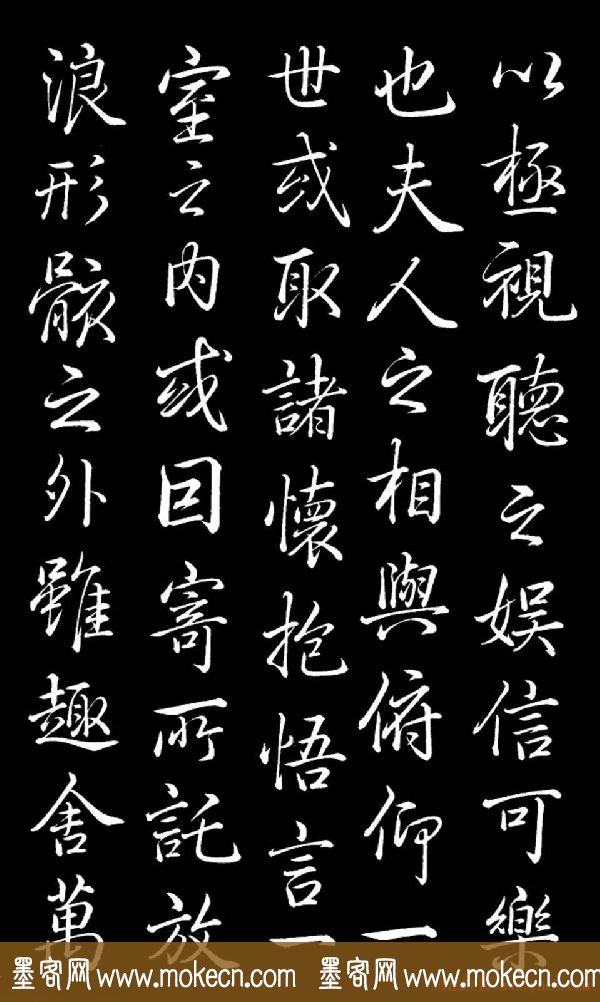 以極視聽之娯信可樂
也夫人之相與俯仰一
世或取諸懷抱悟言一
室之内或因寄所託放
浪形骸之外雖趣舍萬
墨客网 www.mokecn.com 墨客网 www.mokecn.com